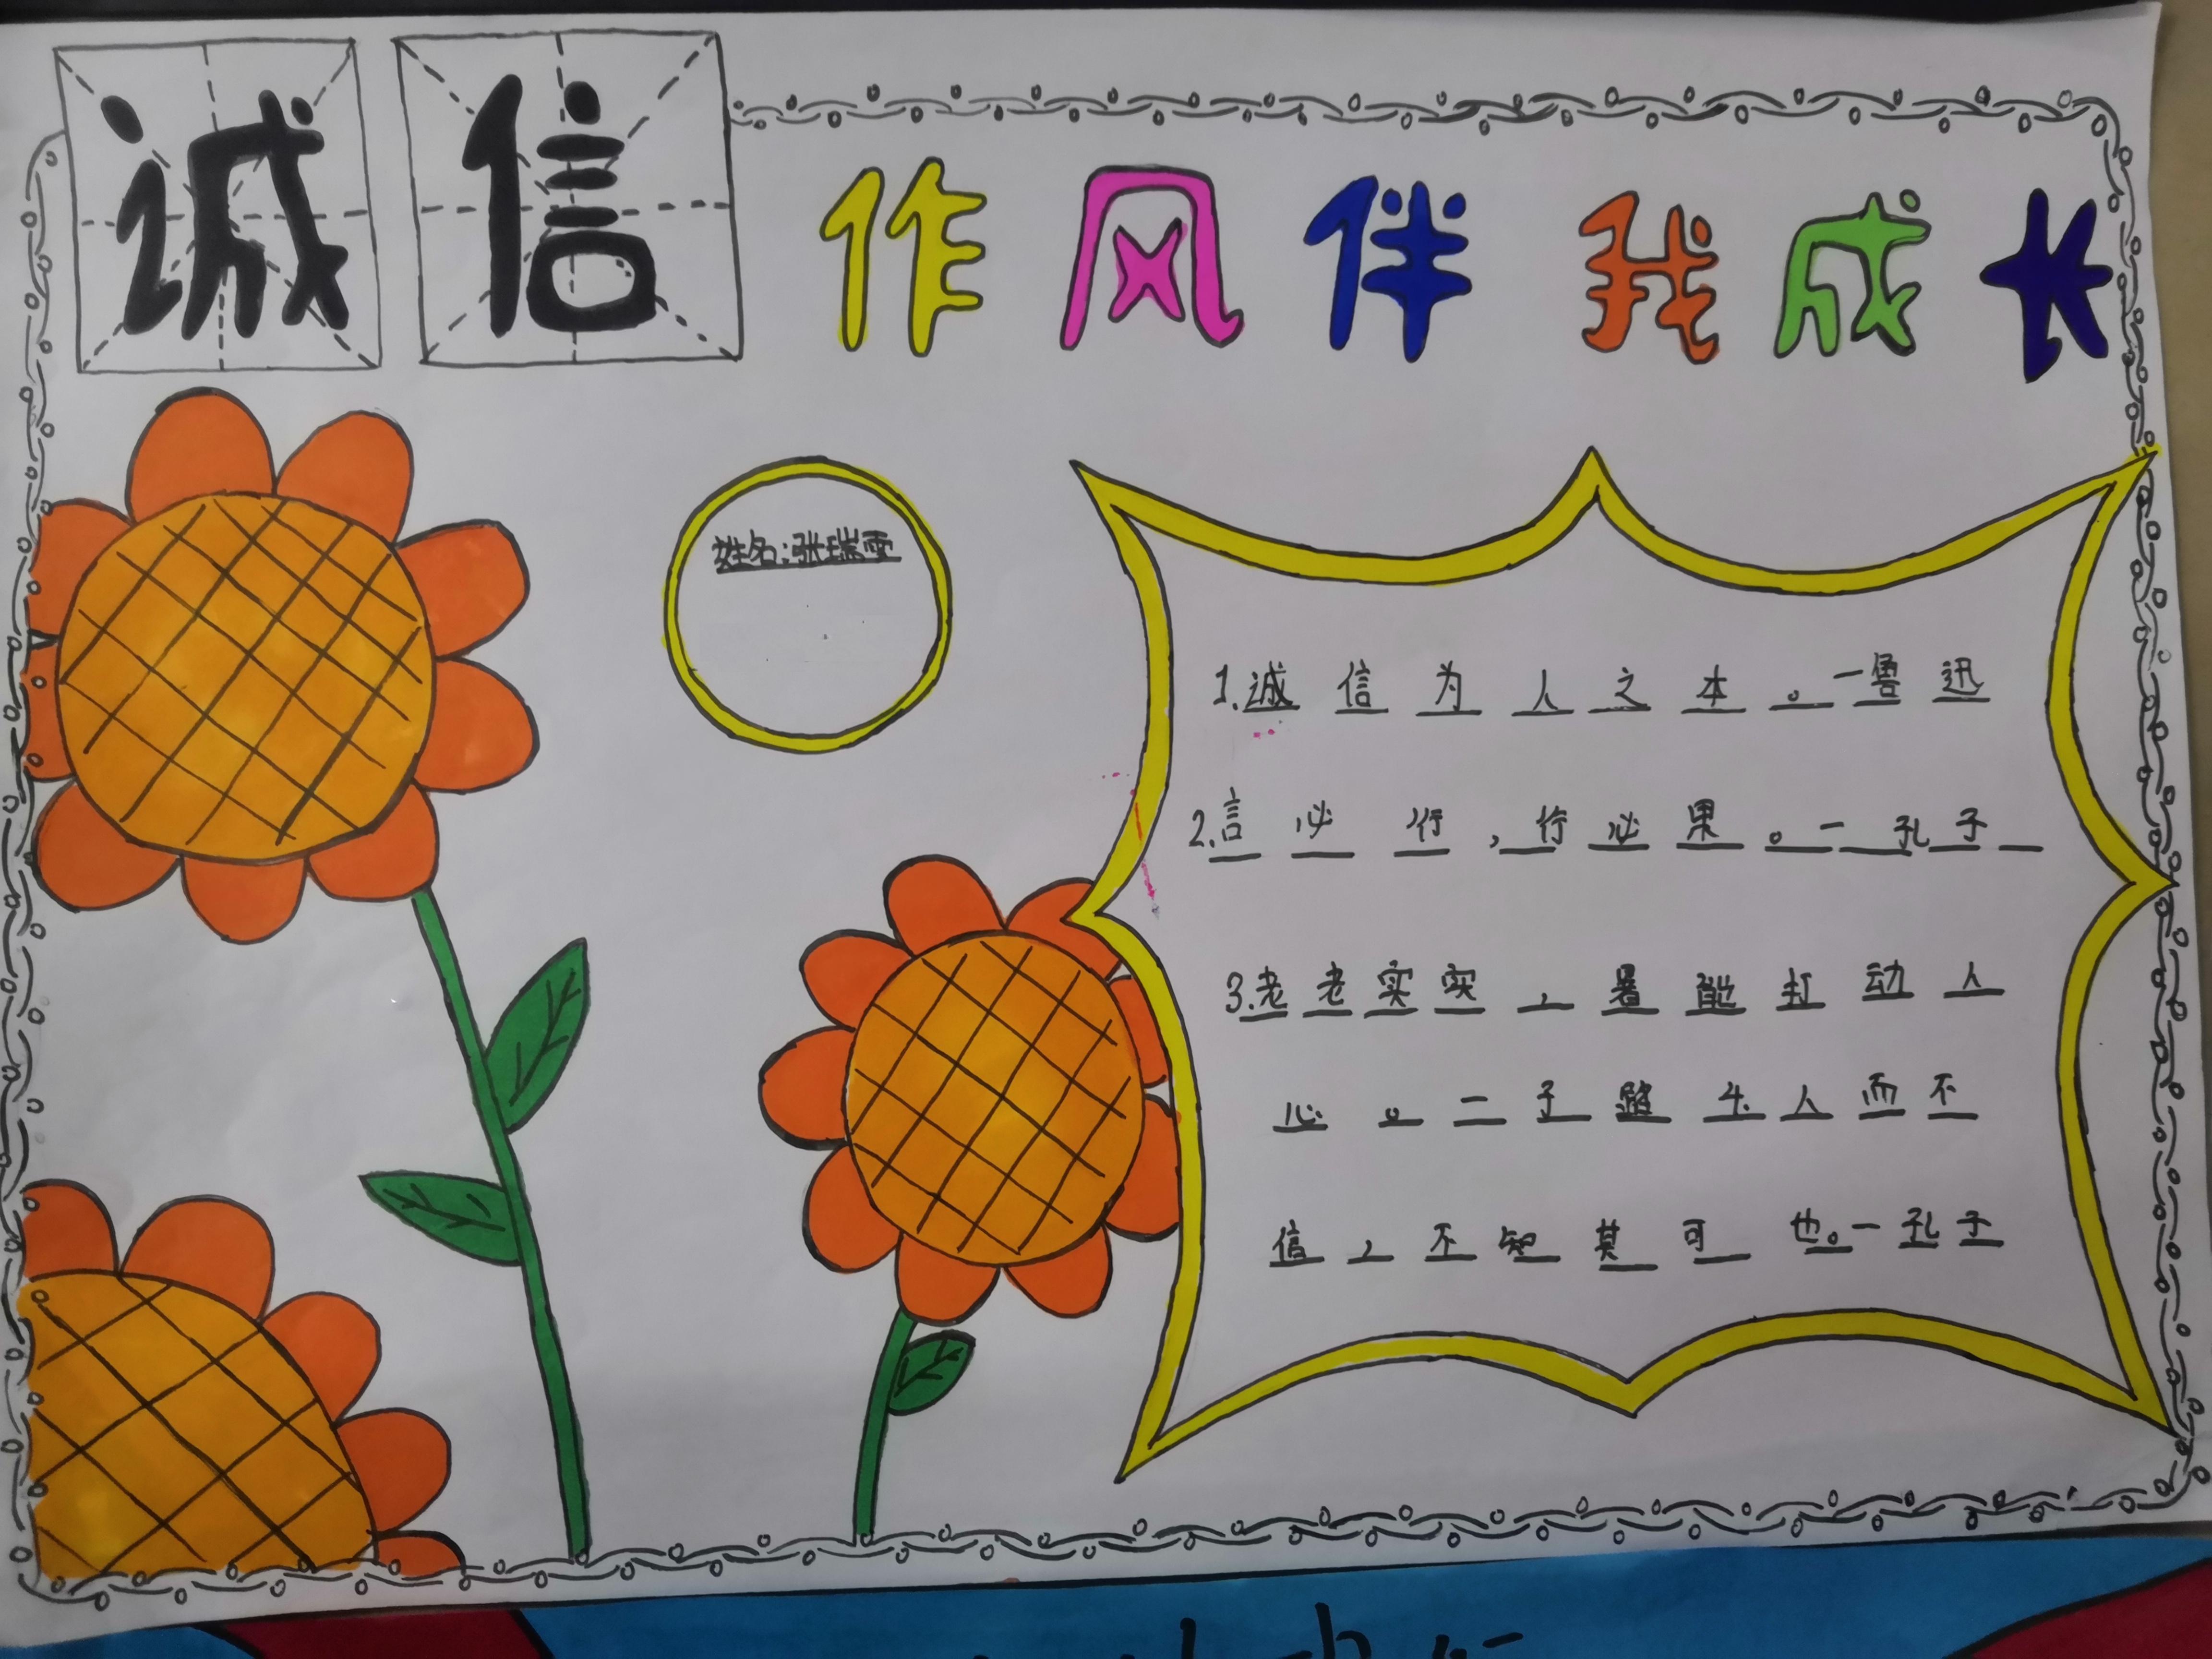 诚信作风伴我成长
姓名:张瑞雪
1.诚信为人之本。一鲁迅
2.言必行,行必果。一孔子
3.老老实实,最能打动人
心。二子路4.人而不
信,不知其可也。一孔子